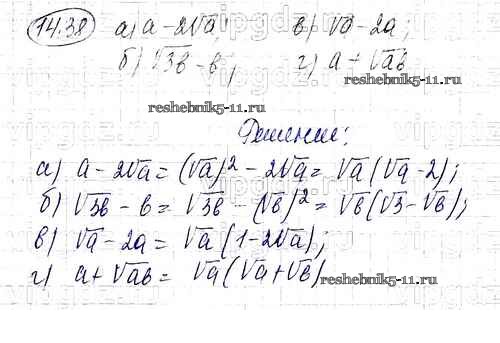 14.38 а) a - 2√a; в) √a - 2a;
б) √3b - b; г) a + √ab
reshebnik5-11.ru reshebnik5-11.ru
Решение:
а) a - 2√a = (√a)² - 2√a = √a(√a - 2);
б) √3b - b = √3b - (√b)² = √b(√3 - √b);
в) √a - 2a = √a(1 - 2√a);
г) a + √ab = √a(√a + √b)
reshebnik5-11.ru